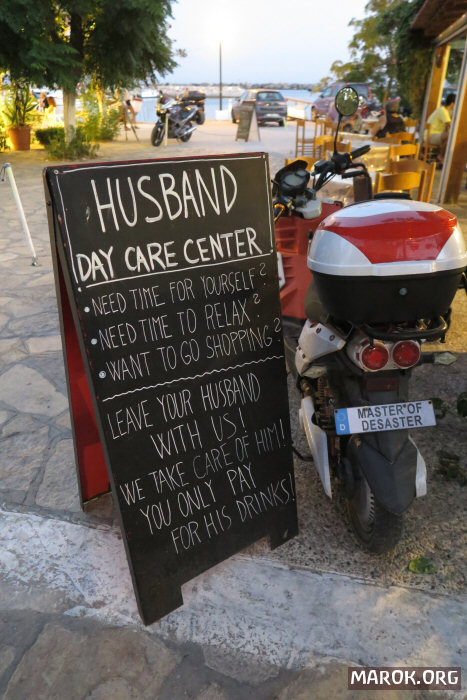 HUSBAND
DAY CARE CENTER
• NEED TIME FOR YOURSELF?
• NEED TIME TO RELAX?
• WANT TO GO SHOPPING?
LEAVE YOUR HUSBAND
WITH US!
WE TAKE CARE OF HIM!
YOU ONLY PAY
FOR HIS DRINKS!
D
MASTER OF
DESASTER
MAROK.ORG